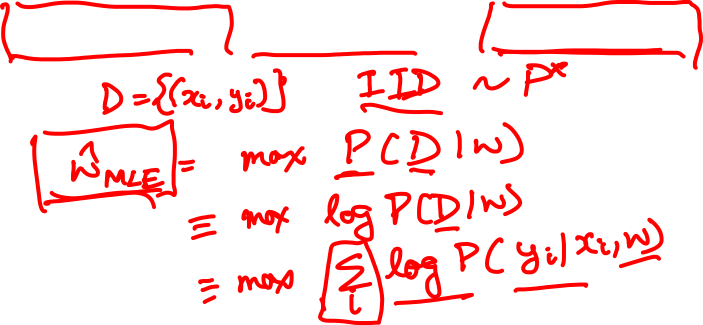 D = {(xᵢ, yᵢ)} IID ~ P*
ŵ_MLE = max P(D|w)
≡ max log P(D|w)
≡ max Σᵢ log P(yᵢ|xᵢ, w)